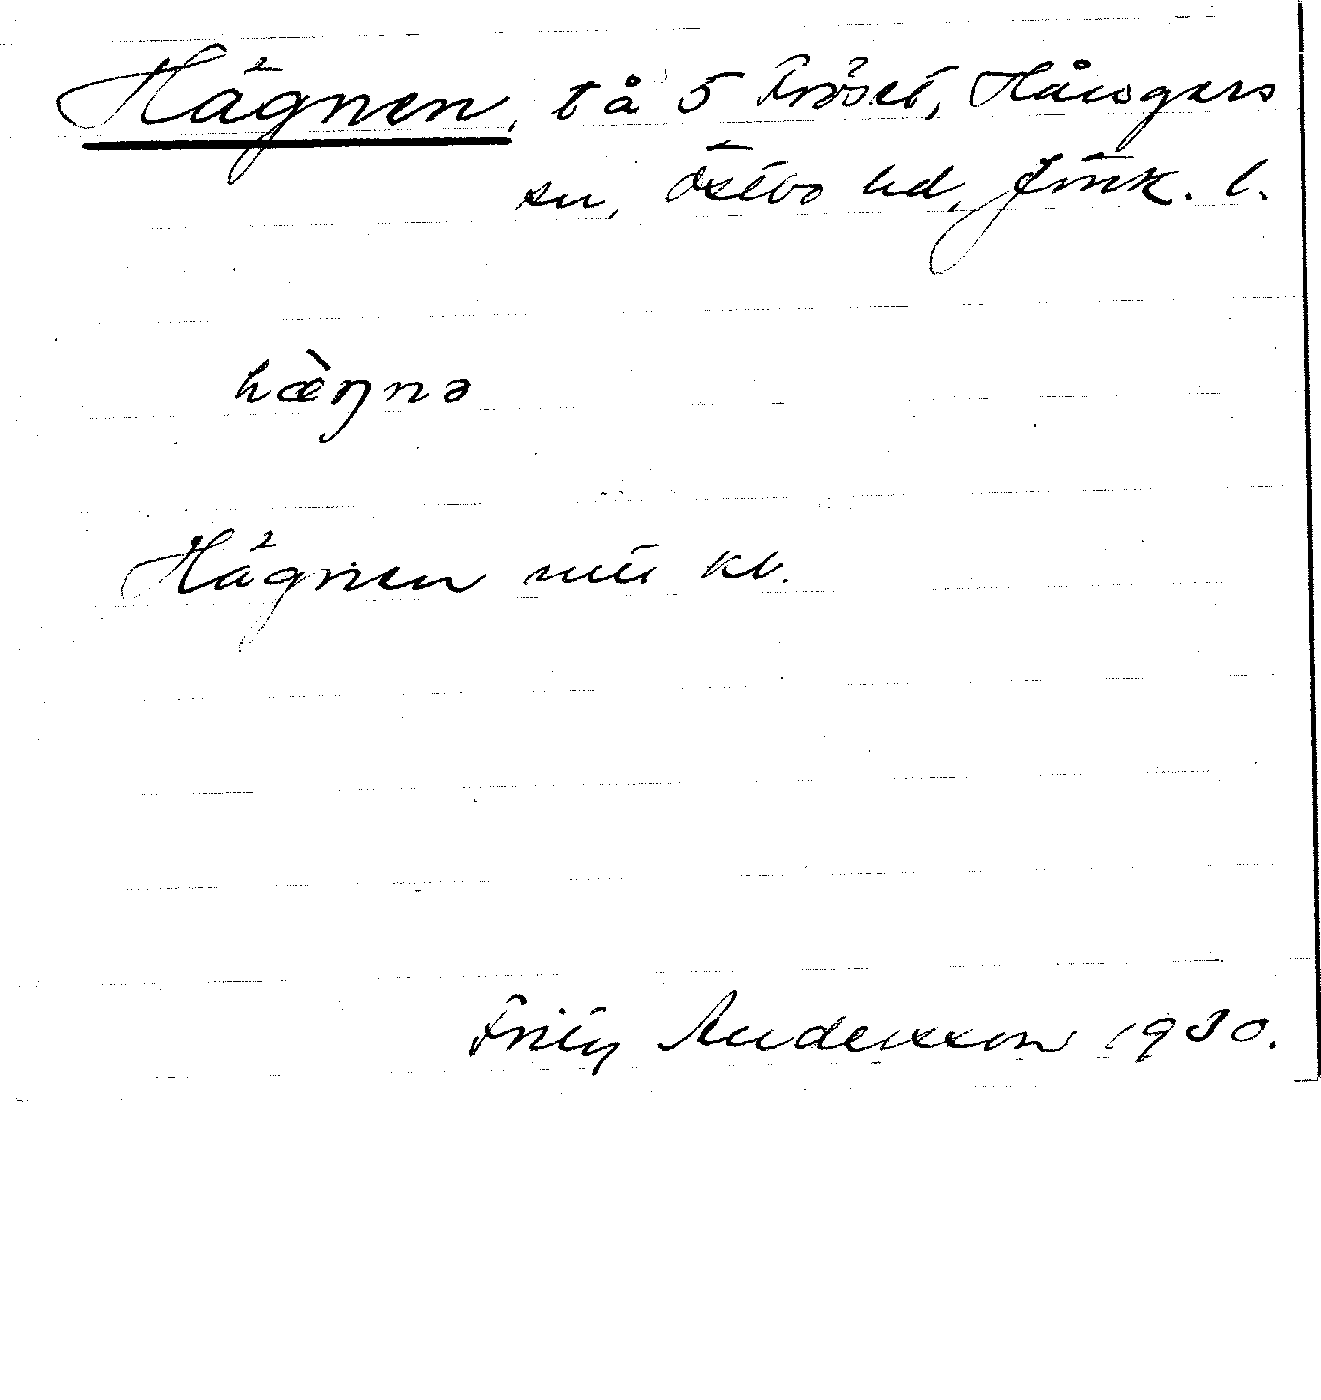 Hägnen, tå 5 Fröset, Hånsgers
sn, Östbo hd, Jönk. l.
hæ̀ŋnə
Hägnen mtl kt.
Fritz Andersson 1930.